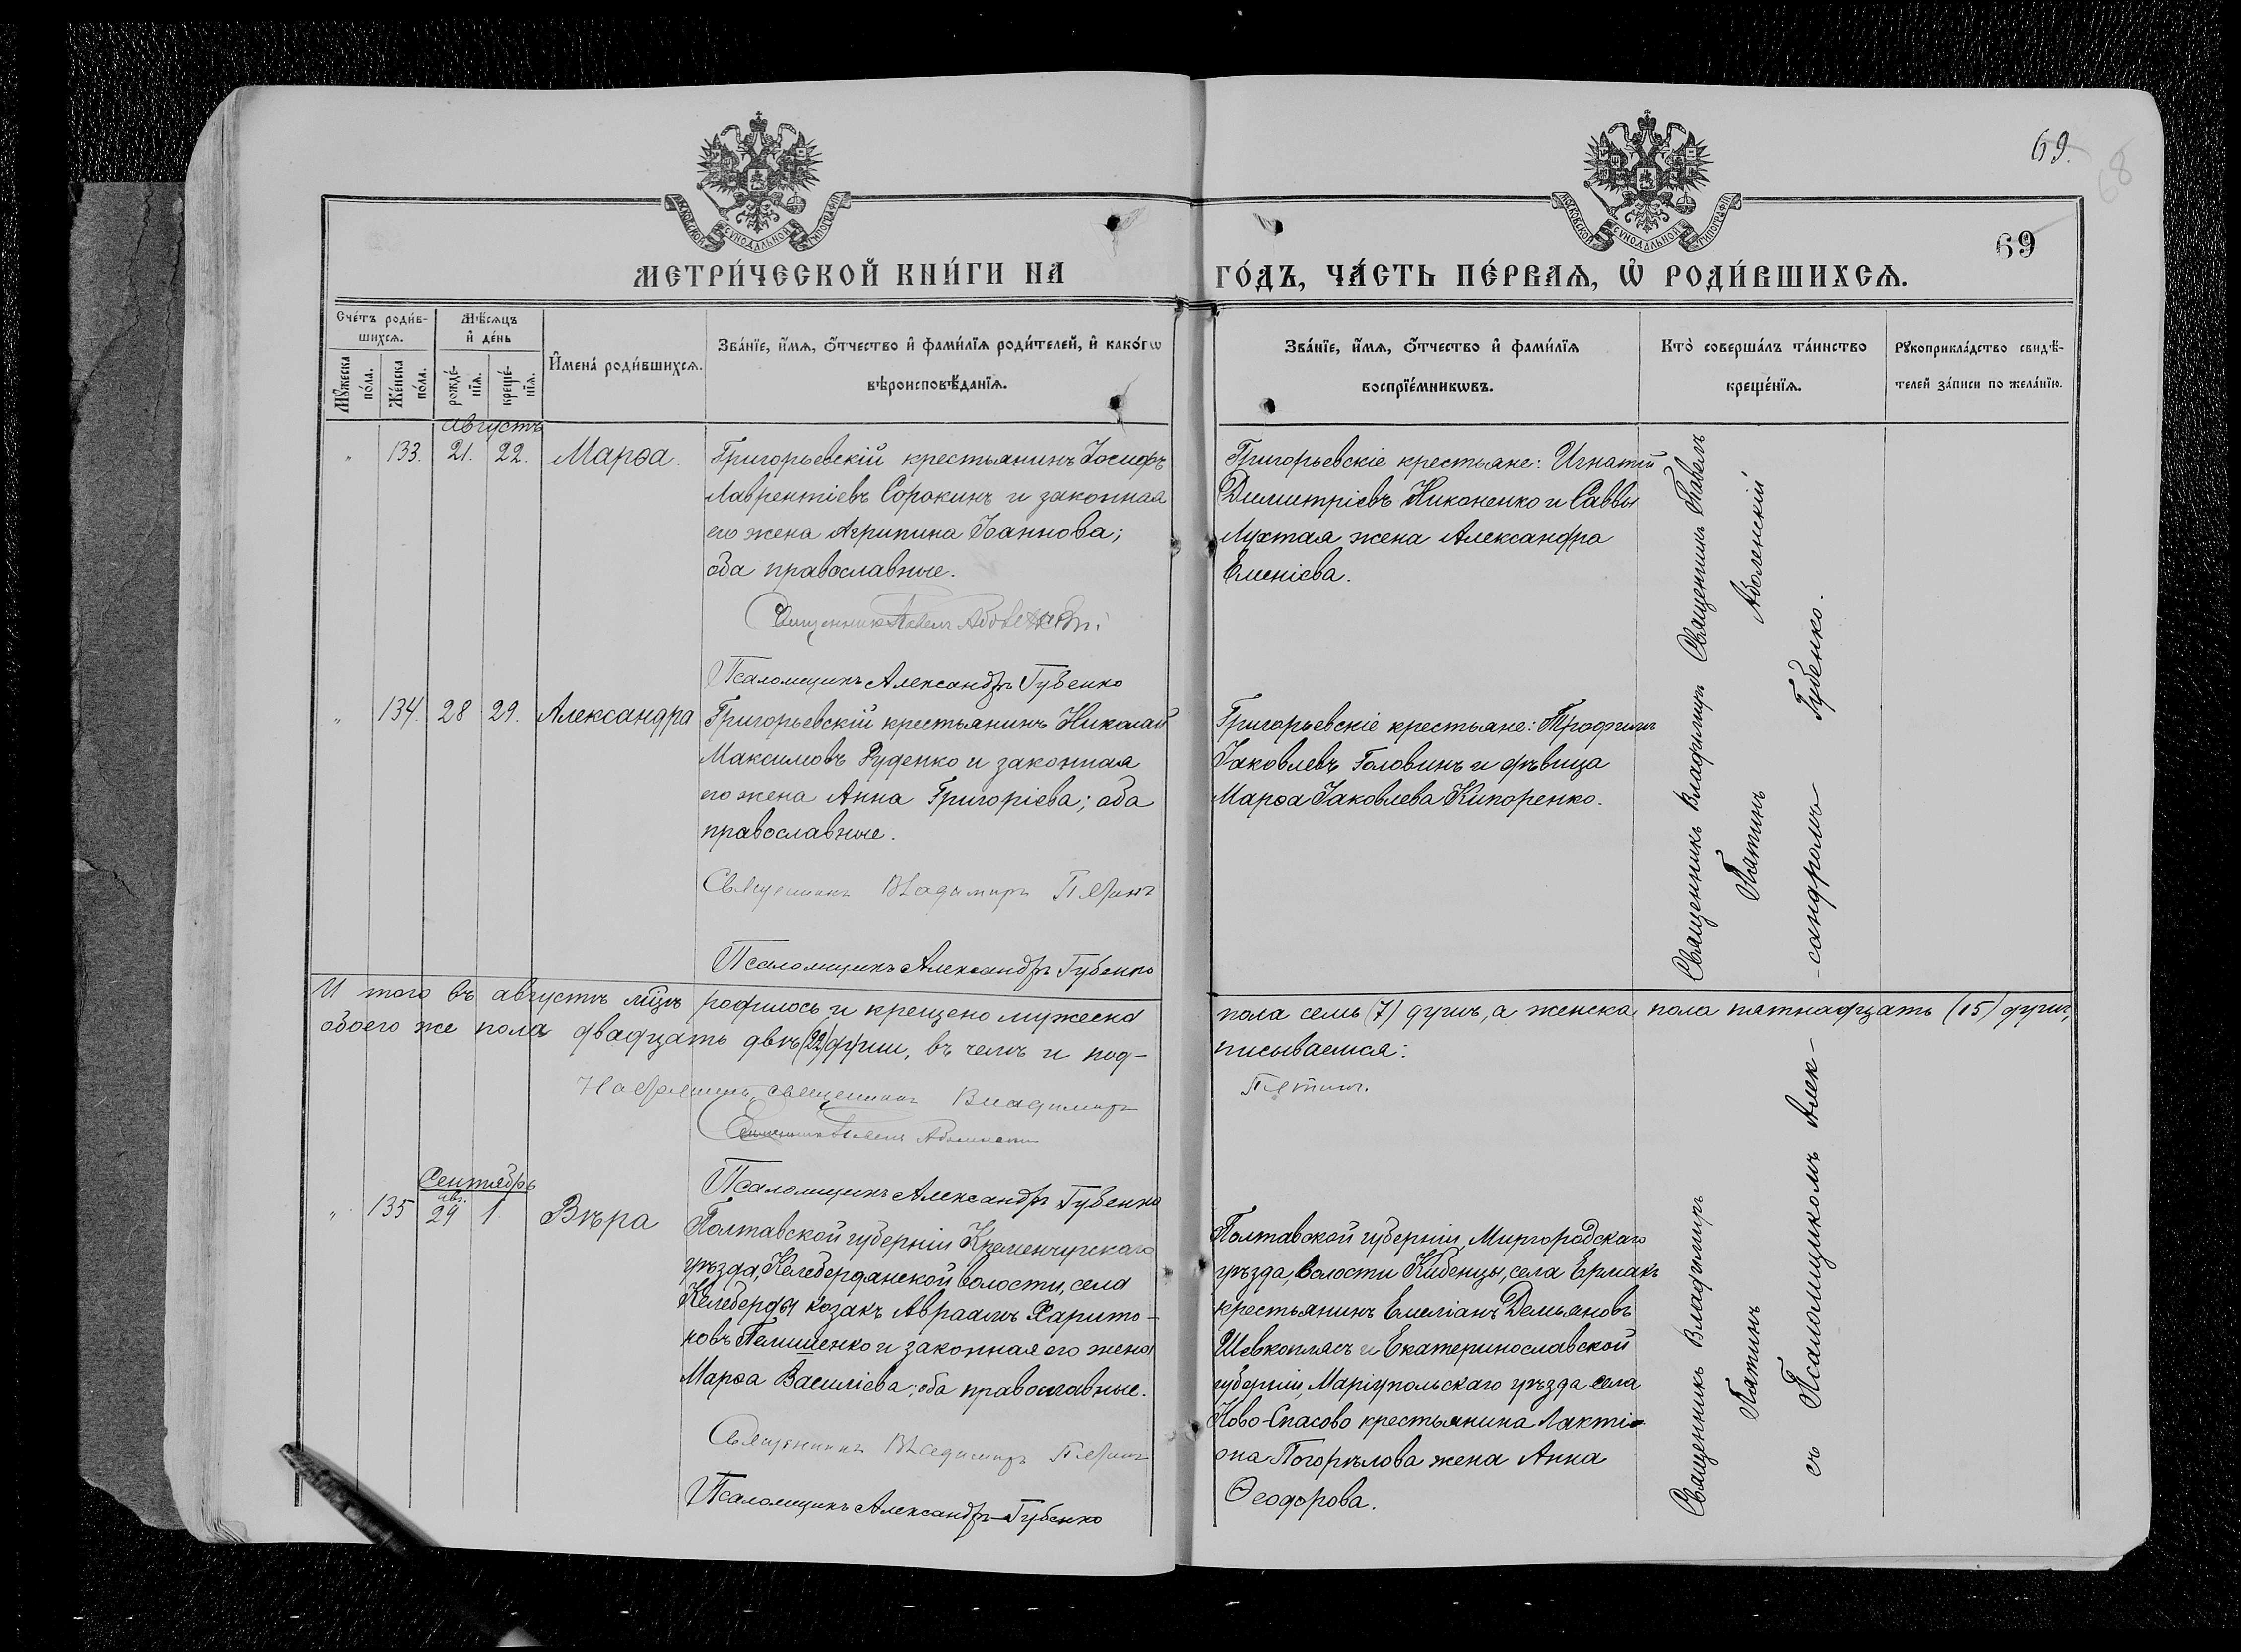 69.
68
69
МОСКОВСКОЙ СѴНОДАЛЬНОЙ ТИПОГРАФІИ
МОСКОВСКОЙ СѴНОДАЛЬНОЙ ТИПОГРАФІИ
МЕТРИ́ЧЕСКОЙ КНИ́ГИ НА
ГО́ДЪ, ЧА́СТЬ ПЕ́РВАѦ, Ѡ҆ РОДИ́ВШИХСѦ.
Сче́тъ роди́в-
шихсѧ.
Мꙋ́жеска
по́ла.
Же́нска
по́ла.
Мѣ́сѧцъ
и҆ де́нь
рожде́-
нїѧ.
креще́-
нїѧ.
И҆мена̀ роди́вшихсѧ.
Зва́нїе, и҆́мѧ, ѻ҆́тчество и҆ фами́лїѧ роди́телей, и҆ како́гѡ
вѣроисповѣ́данїѧ.
Зва́нїе, и҆́мѧ, ѻ҆́тчество и҆ фами́лїѧ
воспрїе́мникѡвъ.
Кто̀ соверша́лъ та́инство
креще́нїѧ.
Рꙋкоприкла́дство свидѣ́-
телей за́писи по жела́нїю.
Августъ
" 133. 21. 22. Марѳа.
Григорьевскій крестьянинъ Іосифъ
Лаврентіевъ Сорокинъ и законная
его жена Агрипина Іоаннова;
оба православные.
Священникъ Павелъ Аболенскій
Псаломщикъ Александръ Губенко
Григорьевскіе крестьяне: Игнатій
Димитріевъ Никоненко и Саввы
Лухтая жена Александра
Емеліева.
Священникъ Павелъ
Аболенскій
" 134. 28 29. Александра
Григорьевскій крестьянинъ Николай
Максимовъ Руденко и законная
его жена Анна Григоріева; оба
православные.
Священникъ Владимиръ Пятинъ
Псаломщикъ Александръ Губенко
Григорьевскіе крестьяне: Трофимъ
Іаковлевъ Головинъ и дѣвица
Марѳа Іаковлева Кипоренко.
Священникъ Владимиръ
Пятинъ
И того въ августѣ мцѣ родилось и крещено мужеска
пола семь (7) душъ, а женска пола пятнадцать (15) душъ,
обоего же пола двадцать двѣ (22) души, въ чемъ и под-
писываемся:
Настоятель, священникъ Владимиръ
Пятинъ.
Священникъ Павелъ Аболенскій
Псаломщикъ Александръ Губенко
Сентябрь
авг.
" 135 29 1 Вѣра
Полтавской губерніи Кременчугскаго
уѣзда, Келебердянской волости, села
Келеберды козакъ Авраамъ Харито-
новъ Пелишенко и законная его жена
Марѳа Василіева; оба православные.
Священникъ Владимиръ Пятинъ
Псаломщикъ Александръ Губенко
Полтавской губерніи, Миргородскаго
уѣзда, волости Кибенцы, села Ермакъ
крестьянинъ Емеліанъ Демьяновъ
Шевкоплясъ и Екатеринославской
губерніи, Маріупольскаго уѣзда села
Ново-Спасово крестьянина Лактіо-
на Погорѣлова жена Анна
Ѳеодорова.
Священникъ Владимиръ
Пятинъ
съ Псаломщикомъ Алек-
сандромъ Губенко.